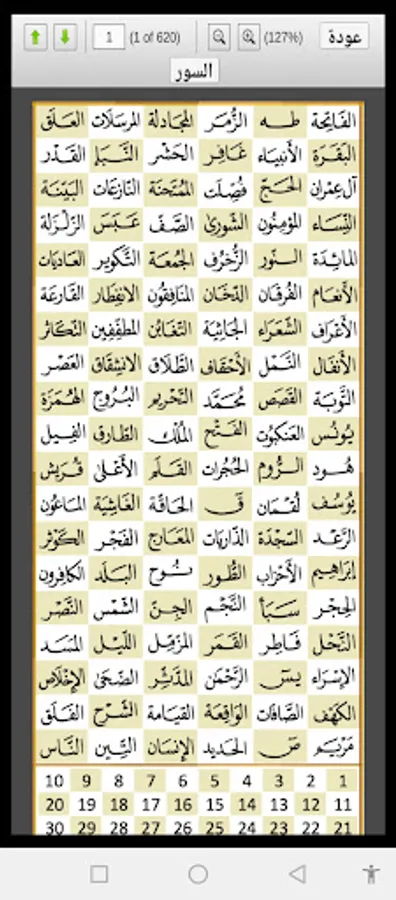 1 (1 of 620) (127%) عودة
السور
الفاتحة طه الزمر المجادلة المرسلات العلق
البقرة الأنبياء غافر الحشر النبإ القدر
آل عمران الحج فصلت الممتحنة النازعات البينة
النساء المؤمنون الشورى الصف عبس الزلزلة
المائدة النور الزخرف الجمعة التكوير العاديات
الأنعام الفرقان الدخان المنافقون الانفطار القارعة
الأعراف الشعراء الجاثية التغابن المطففين التكاثر
الأنفال النمل الأحقاف الطلاق الانشقاق العصر
التوبة القصص محمد التحريم البروج الهمزة
يونس العنكبوت الفتح الملك الطارق الفيل
هود الروم الحجرات القلم الأعلى قريش
يوسف لقمان ق الحاقة الغاشية الماعون
الرعد السجدة الذاريات المعارج الفجر الكوثر
إبراهيم الأحزاب الطور نوح البلد الكافرون
الحجر سبأ النجم الجن الشمس النصر
النحل فاطر القمر المزمل الليل المسد
الإسراء يس الرحمن المدثر الضحى الإخلاص
الكهف الصافات الواقعة القيامة الشرح الفلق
مريم ص الحديد الإنسان التين الناس
10 9 8 7 6 5 4 3 2 1
20 19 18 17 16 15 14 13 12 11
30 29 28 27 26 25 24 23 22 21